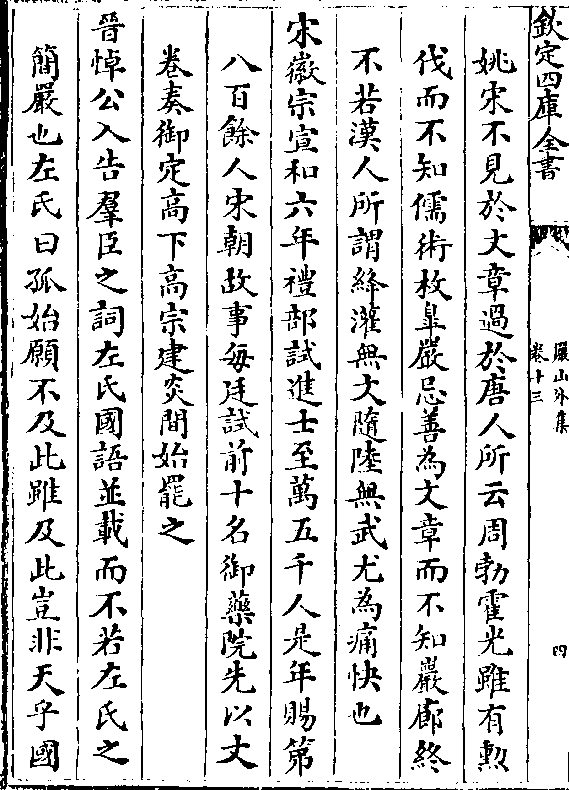 欽定四庫全書
儼山外集
卷十三
四
姚宋不見於文章過於唐人所云周勃霍光雖有勲
伐而不知儒術枚臯嚴忌善為文章而不知巖廊終
不若漢人所謂絳灌無文隨陸無武尤為痛快也
宋徽宗宣和六年禮部試進士至萬五千人是年賜第
八百餘人宋朝故事每廷試前十名御藥院先以文
卷奏御定高下高宗建炎間始罷之
晉悼公入告羣臣之詞左氏國語並載而不若左氏之
簡嚴也左氏曰孤始願不及此雖及此豈非天乎國